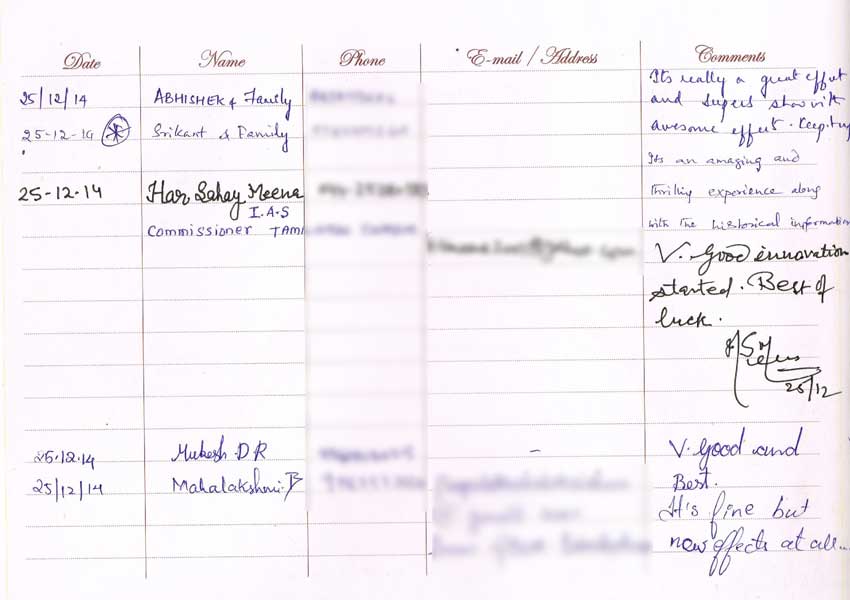 Date Name Phone E-mail / Address Comments
25/12/14 ABHISHEK & Family
Its really a great effort
and supers show with
awesome effort. Keep try
25-12-14 Srikant & Family
Its an amazing and
thrilling experience along
with the historical information
25-12-14 Har Sahay Meena
I.A.S
Commissioner TAMI
V. Good innovation
started. Best of
luck.
25/12
25.12.14 Mukesh.D R –
V. good and
Best.
25/12/14 Mahalakshmi.B
It's fine but
new effects at all...